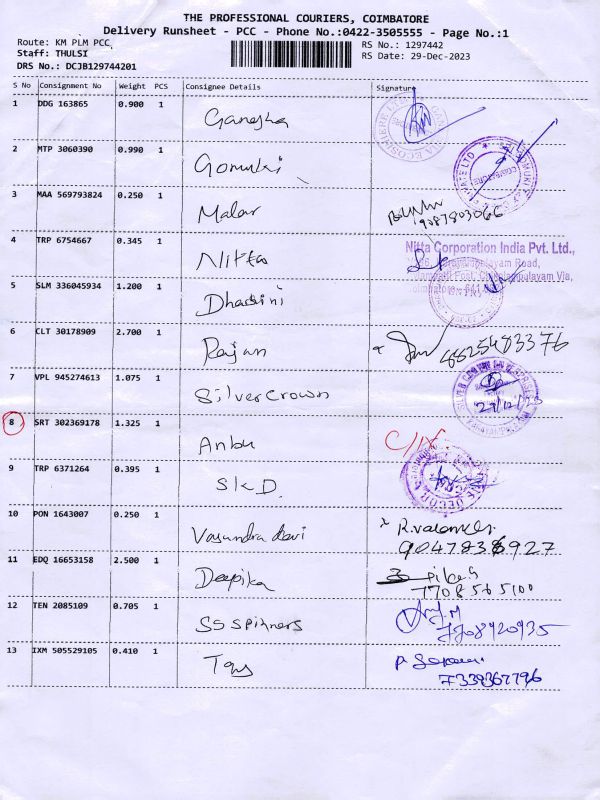 THE PROFESSIONAL COURIERS, COIMBATORE
Delivery Runsheet - PCC - Phone No.:0422-3505555 - Page No.:1
Route: KM PLM PCC
Staff: THULSI
DRS No.: DCJB129744201
RS No.: 1297442
RS Date: 29-Dec-2023
S No Consignment No Weight PCS Consignee Details Signature
1 DDG 163865 0.900 1 Ganesha
2 MTP 3060390 0.990 1 Gomuki
3 MAA 569793824 0.250 1 Malar
9087803066
4 TRP 6754667 0.345 1 Nitta
Nitta Corporation India Pvt. Ltd.,
Road,
Post, Via,
5 SLM 336045934 1.200 1 Dharini
6 CLT 30178909 2.700 1 Rajan
8825483376
7 VPL 945274613 1.075 1 Silver Crown
29/12/23
8 SRT 302369178 1.325 1 Anbu
9 TRP 6371264 0.395 1 S K D.
10 PON 1643007 0.250 1 Vasundra devi
11 EDQ 16653158 2.500 1 Deepika
7708565100
12 TEN 2085109 0.705 1 SS Spinners
7708920935
13 IXM 505529105 0.410 1
7339367796